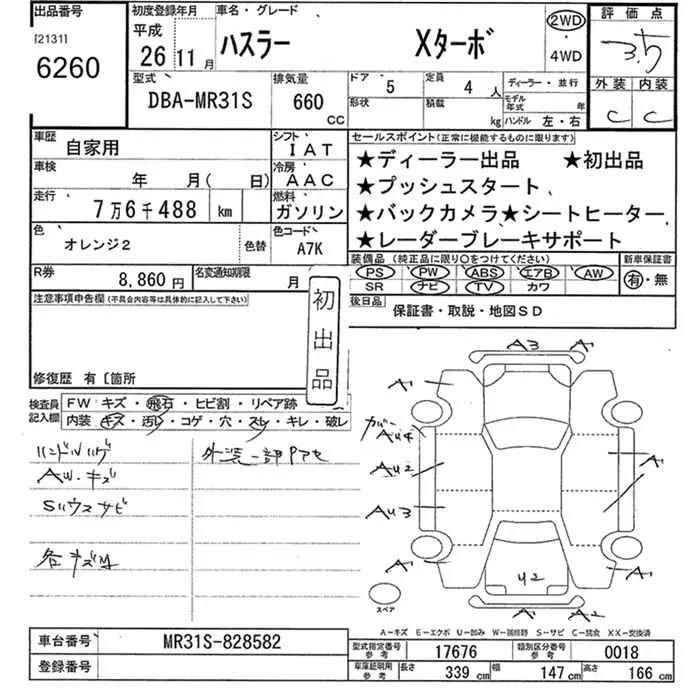 出品番号
[2131]
6260
初度登録年月
平成
26 11 月
車名・グレード
ハスラー Xターボ
2WD
・
4WD
評価点
3.5
外装 内装
C C
型式
DBA-MR31S
排気量
660
CC
ドア 5
定員 4 人
ディーラー・並行
形状
積載 kg
モデル年式 年
ハンドル 左・右
車歴
自家用
シフト
IAT
車検
年 月( 日)
冷房
AAC
走行
7万6千488 km
燃料
ガソリン
色
オレンジ2
色替
色コード
A7K
R券
8,860円
名変通知期限
月
セールスポイント(正常に機能するものに限ります)
★ディーラー出品 ★初出品
★プッシュスタート
★バックカメラ★シートヒーター
★レーダーブレーキサポート
装備品(純正品に限り○をつけてください)
PS PW ABS エアB AW
SR ナビ TV カワ
新車保証書
有・無
後日品
保証書・取説・地図SD
注意事項申告欄(不具合内容等は具体的に記入して下さい)
初出品
修復歴 有〔箇所
検査員記入欄
FW キズ・飛石・ヒビ割・リペア跡
内装 キズ・汚レ・コゲ・穴・スレ・キレ・破レ
ハンドルハゲ
AW・キズ
Sハウスサビ
各キズM
外装一部Pアセ
A3 A1
A1
カバー
AU4
AU2
AU3
A1
A1
A1
A1
U2
A1 A2
スペア
A-キズ E-エクボ U-凹み W-補修跡 S-サビ C-腐食 XX-交換済
車台番号
MR31S-828582
登録番号
型式指定番号
参考
17676
類別区分番号
参考
0018
車庫証明用
参考
長さ 339 cm
幅 147 cm
高さ 166 cm